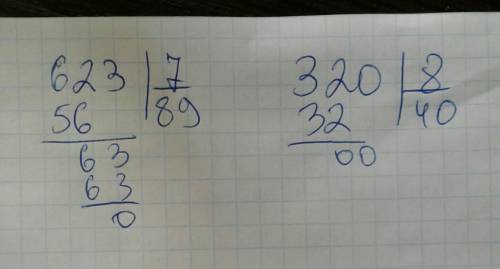 623 7
56 89
63
63
0
320 8
32 40
00